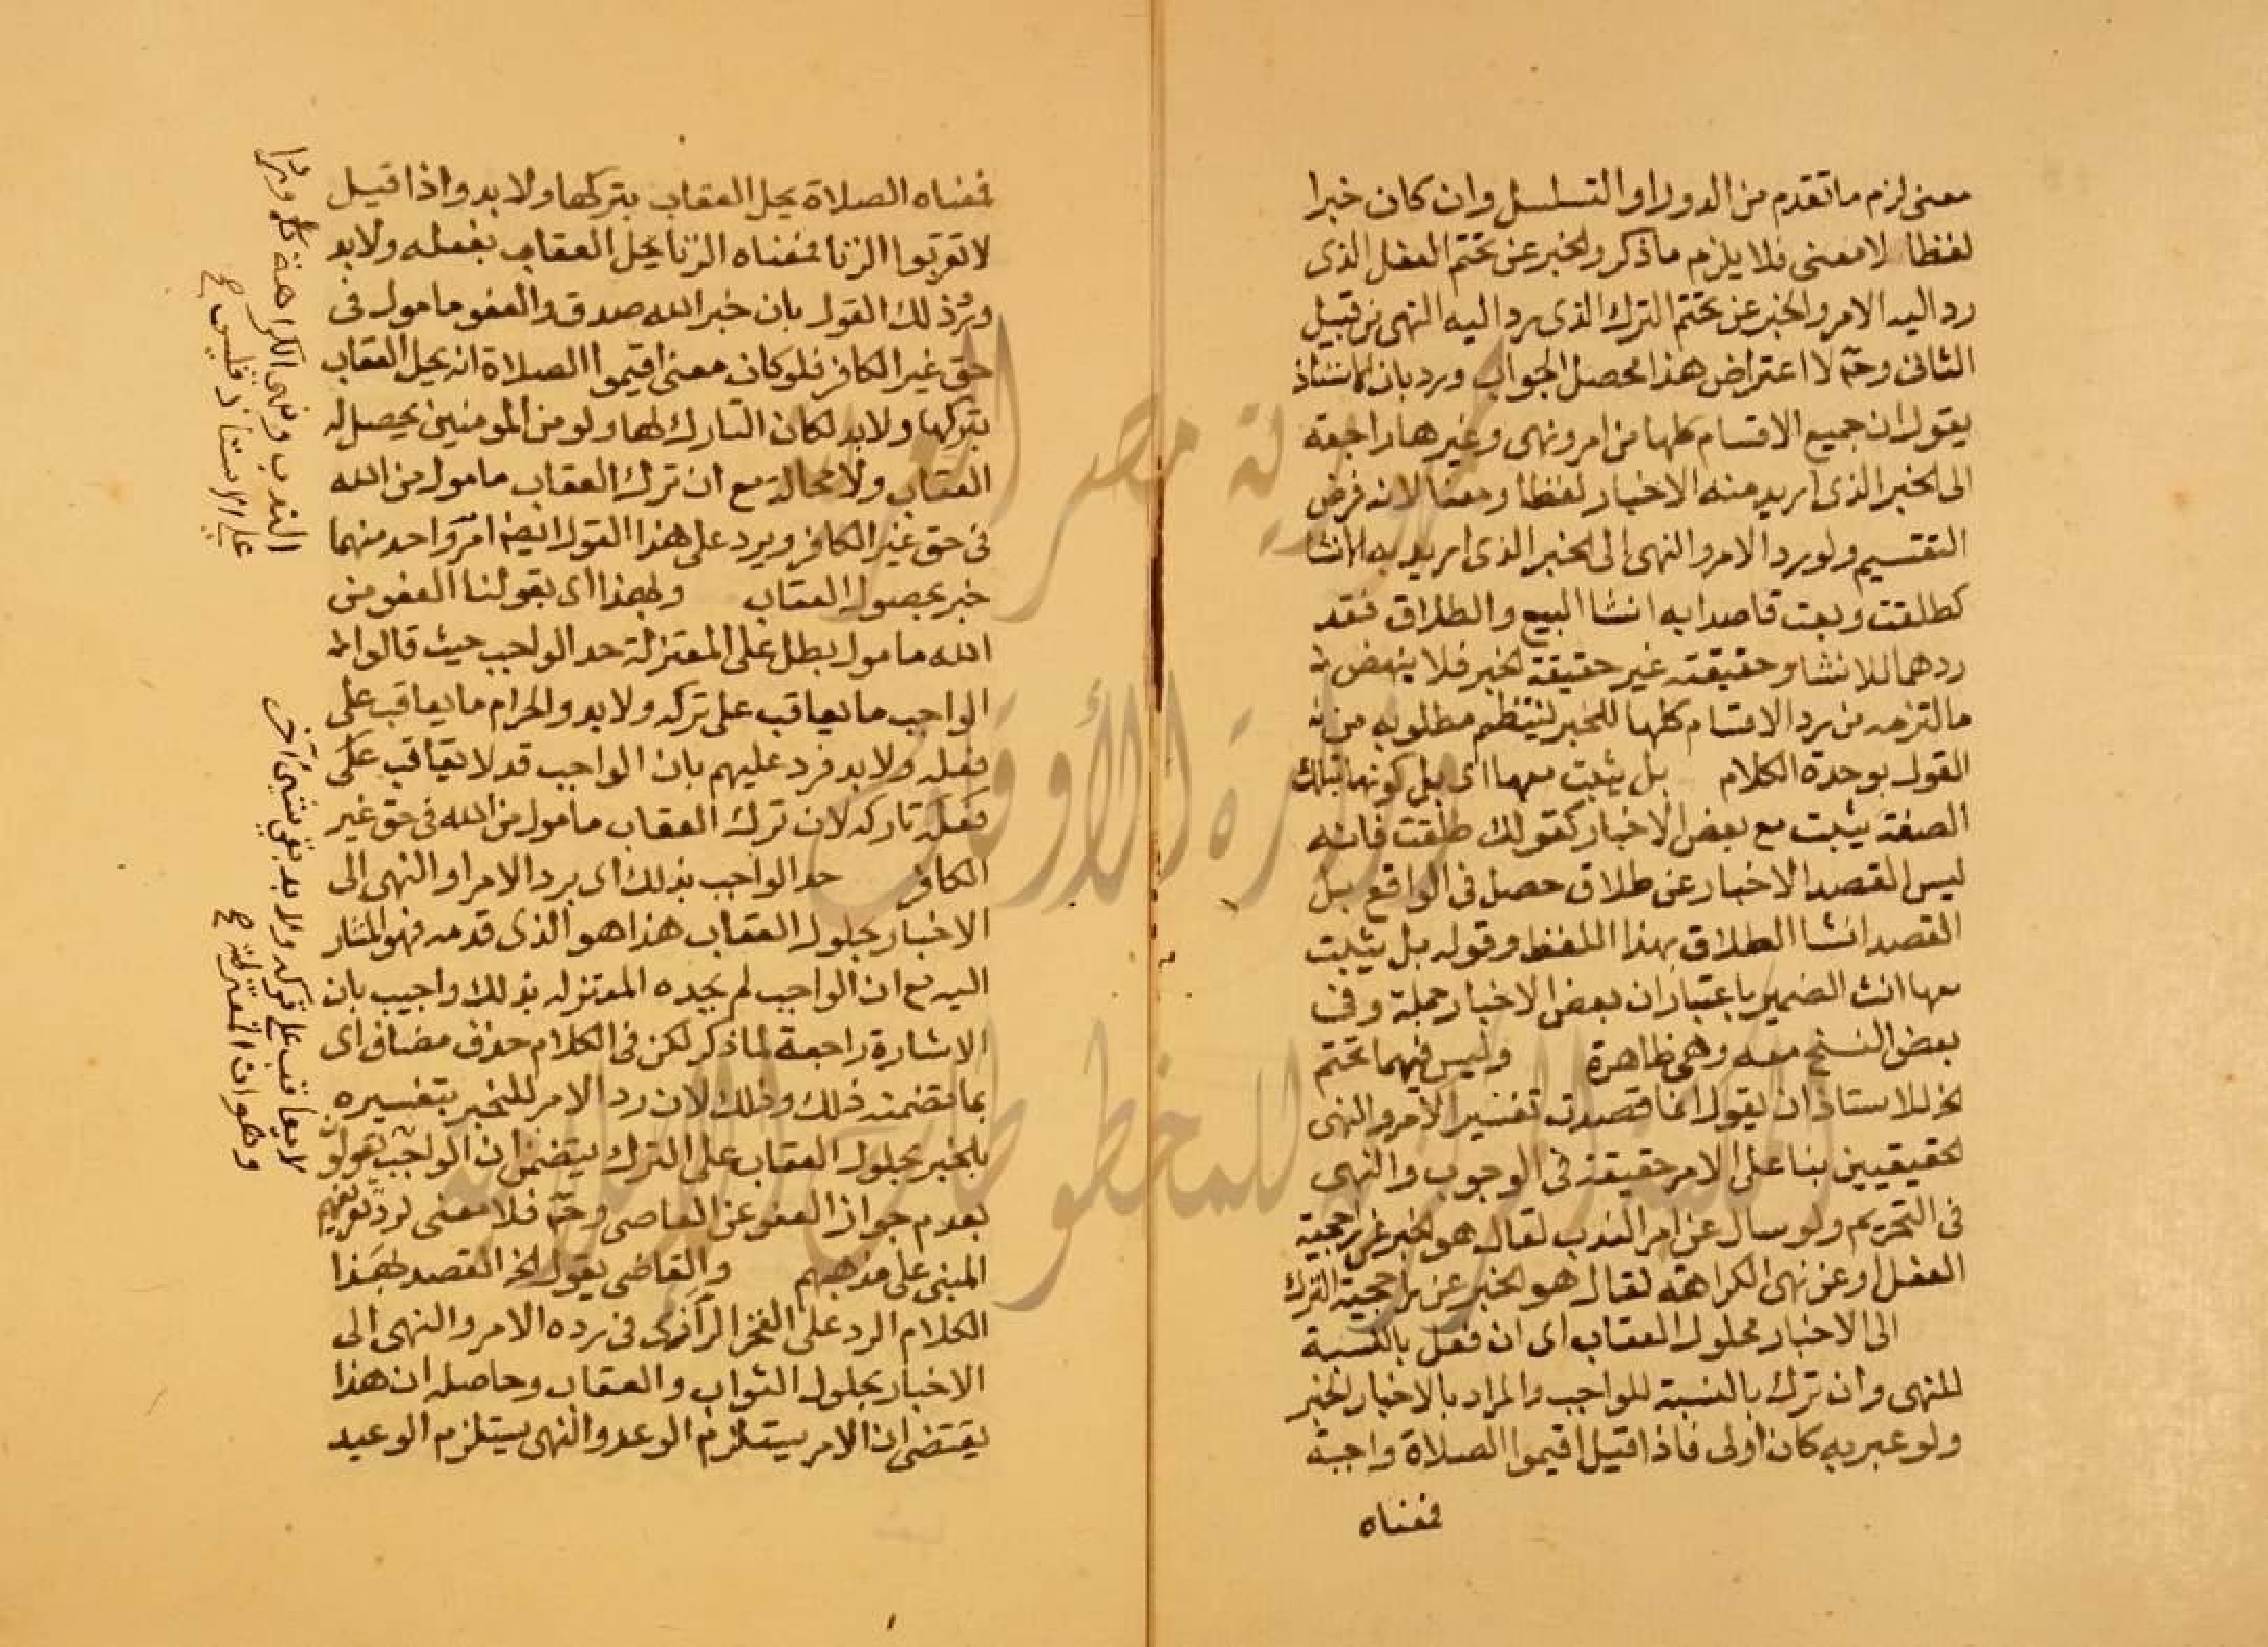 معنى لزم ما تقدم من الدور او التسلسل وان كان خبرا
لفظا لا معنى فلا يلزم ما ذكر والخبر عن تحتم الفعل الذى
رد اليه الامر والخبر عن تحتم الترك الذى يرد اليه النهى من قبيل
الثانى وحّ لا اعتراض هذا محصل الجواب ورد بان الاستاذ
يقول ان جميع الاقسام كلها من امر ونهى وغيرها راجعة
الى الخبر الذى اريد منه الاخبار لفظا ومعنا لانه فرض
التقسيم ولو يرد الامر والنهى الى الخبر الذى اريد به الانشا
كطلقت وبعت قاصدا به انشا البيع والطلاق فقد
ردهما للانشا وحقيقته غير حقيقة الخبر فلا ينهض
ما التزمه من رد الاقسام كلها للخبر لينتظم مطلوبه من
القول بوحدة الكلام بل يثبت معها اى بل كونها بتلك
الصفة يثبت مع بعض الاخبار كقولك طلقت فانه
ليس القصد الاخبار عن طلاق حصل فى الواقع بل
القصد انشا الطلاق بهذا اللفظ وقوله بل يثبت
معها انث الضمير باعتبار ان بعض الاخبار جملة وفى
بعض النسخ معه وهى ظاهرة وليس فيهما تحتم
الخ للاستاذ ان يقول انما قصدت تفسير الامر والنهى
الحقيقيين بنا على الامر حقيقة فى الوجوب والنهى
فى التحريم ولو سال عن امر الندب لقال هو الخبر عن ارجحية
الفعل او عن نهى الكراهة لقال هو الخبر عن ارجحية الترك
الى الاخبار بحلول العقاب اى ان فعل بالنسبة
للنهى وان ترك بالنسبة للواجب والمراد بالاخبار الخبر
ولو عبر به كان اولى فاذا قيل اقيموا الصلاة واجبة
فمعناه
فمعناه الصلاة يحل العقاب بتركها ولا بد واذا قيل
لا تقربوا الزنا فمعناه الزنا يحل العقاب بفعله ولا بد
ورد ذلك القول بان خبر الله صدق والعفو مامول فى
حق غير الكافر فلو كان معنى اقيموا الصلاة انه يحل العقاب
بتركها ولا بد لكان التارك لها ولو من المومنين يحصل له
العقاب ولا محالة مع ان ترك العقاب مامول من الله
فى حق غير الكافر ويرد على هذا القول ايضا
خبر بحصول العقاب ولهذا اى بقولنا العفو من
الله مامول بطل على المعتزلة حد الواجب حيث قالوا
الواجب ما يعاقب على تركه ولا بد والحرام ما يعاقب على
فعله ولا بد فرد عليهم بان الواجب قد لا يعاقب على
فعله تاركه لان ترك العقاب مامول من الله فى حق غير
الكافر حد الواجب بذلك اى برد الامر او النهى الى
الاخبار بحلول العقاب هذا هو الذى قدمه فهو المشار
اليه مع ان الواجب لم يحده المعتزله بذلك واجيب بان
الاشارة راجعة لما ذكر لكن فى الكلام حذف مضاف اى
بما تضمنه ذلك وذلك لان رد الامر للخبر بتفسيره
بالخبر بحلول العقاب على الترك يتضمن ان الواجب
بعدم جواز العفو عن العاصى وحّ فلا معنى لرد تعريفهم
المبنى على مذهبهم والقاضى يقول الخ القصد بهذا
الكلام الرد على الفخر الرازى فى رده الامر والنهى الى
الاخبار بحلول الثواب والعقاب وحاصله ان هذا
يقتضى ان الامر يستلزم الوعد والنهى يستلزم الوعيد
الندب ونهى الكراهة
على الاستاذ فليس
لا يعاقب على تركه ولا بد بقى شئ آخر
وهو ان المعتزلة